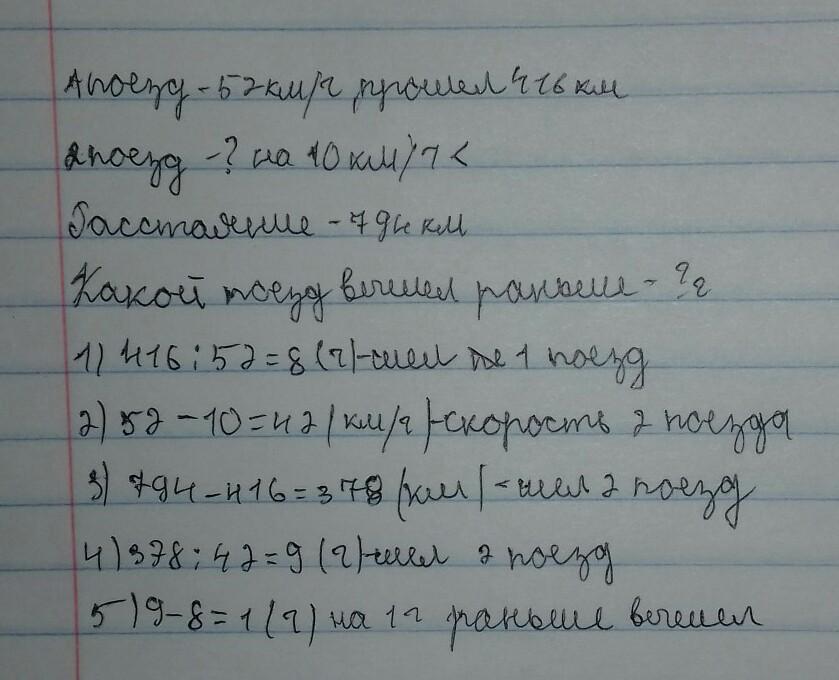 1 поезд - 52 км/ч прошел 416 км
2 поезд - ? на 10 км/ч <
Расстояние - 794 км
Какой поезд вышел раньше - ? ч
1) 416 : 52 = 8 (ч) - шел 1 поезд
2) 52 - 10 = 42 (км/ч) - скорость 2 поезда
3) 794 - 416 = 378 (км) - шел 2 поезд
4) 378 : 42 = 9 (ч) - шел 2 поезд
5) 9 - 8 = 1 (ч) на 1 ч раньше вышел